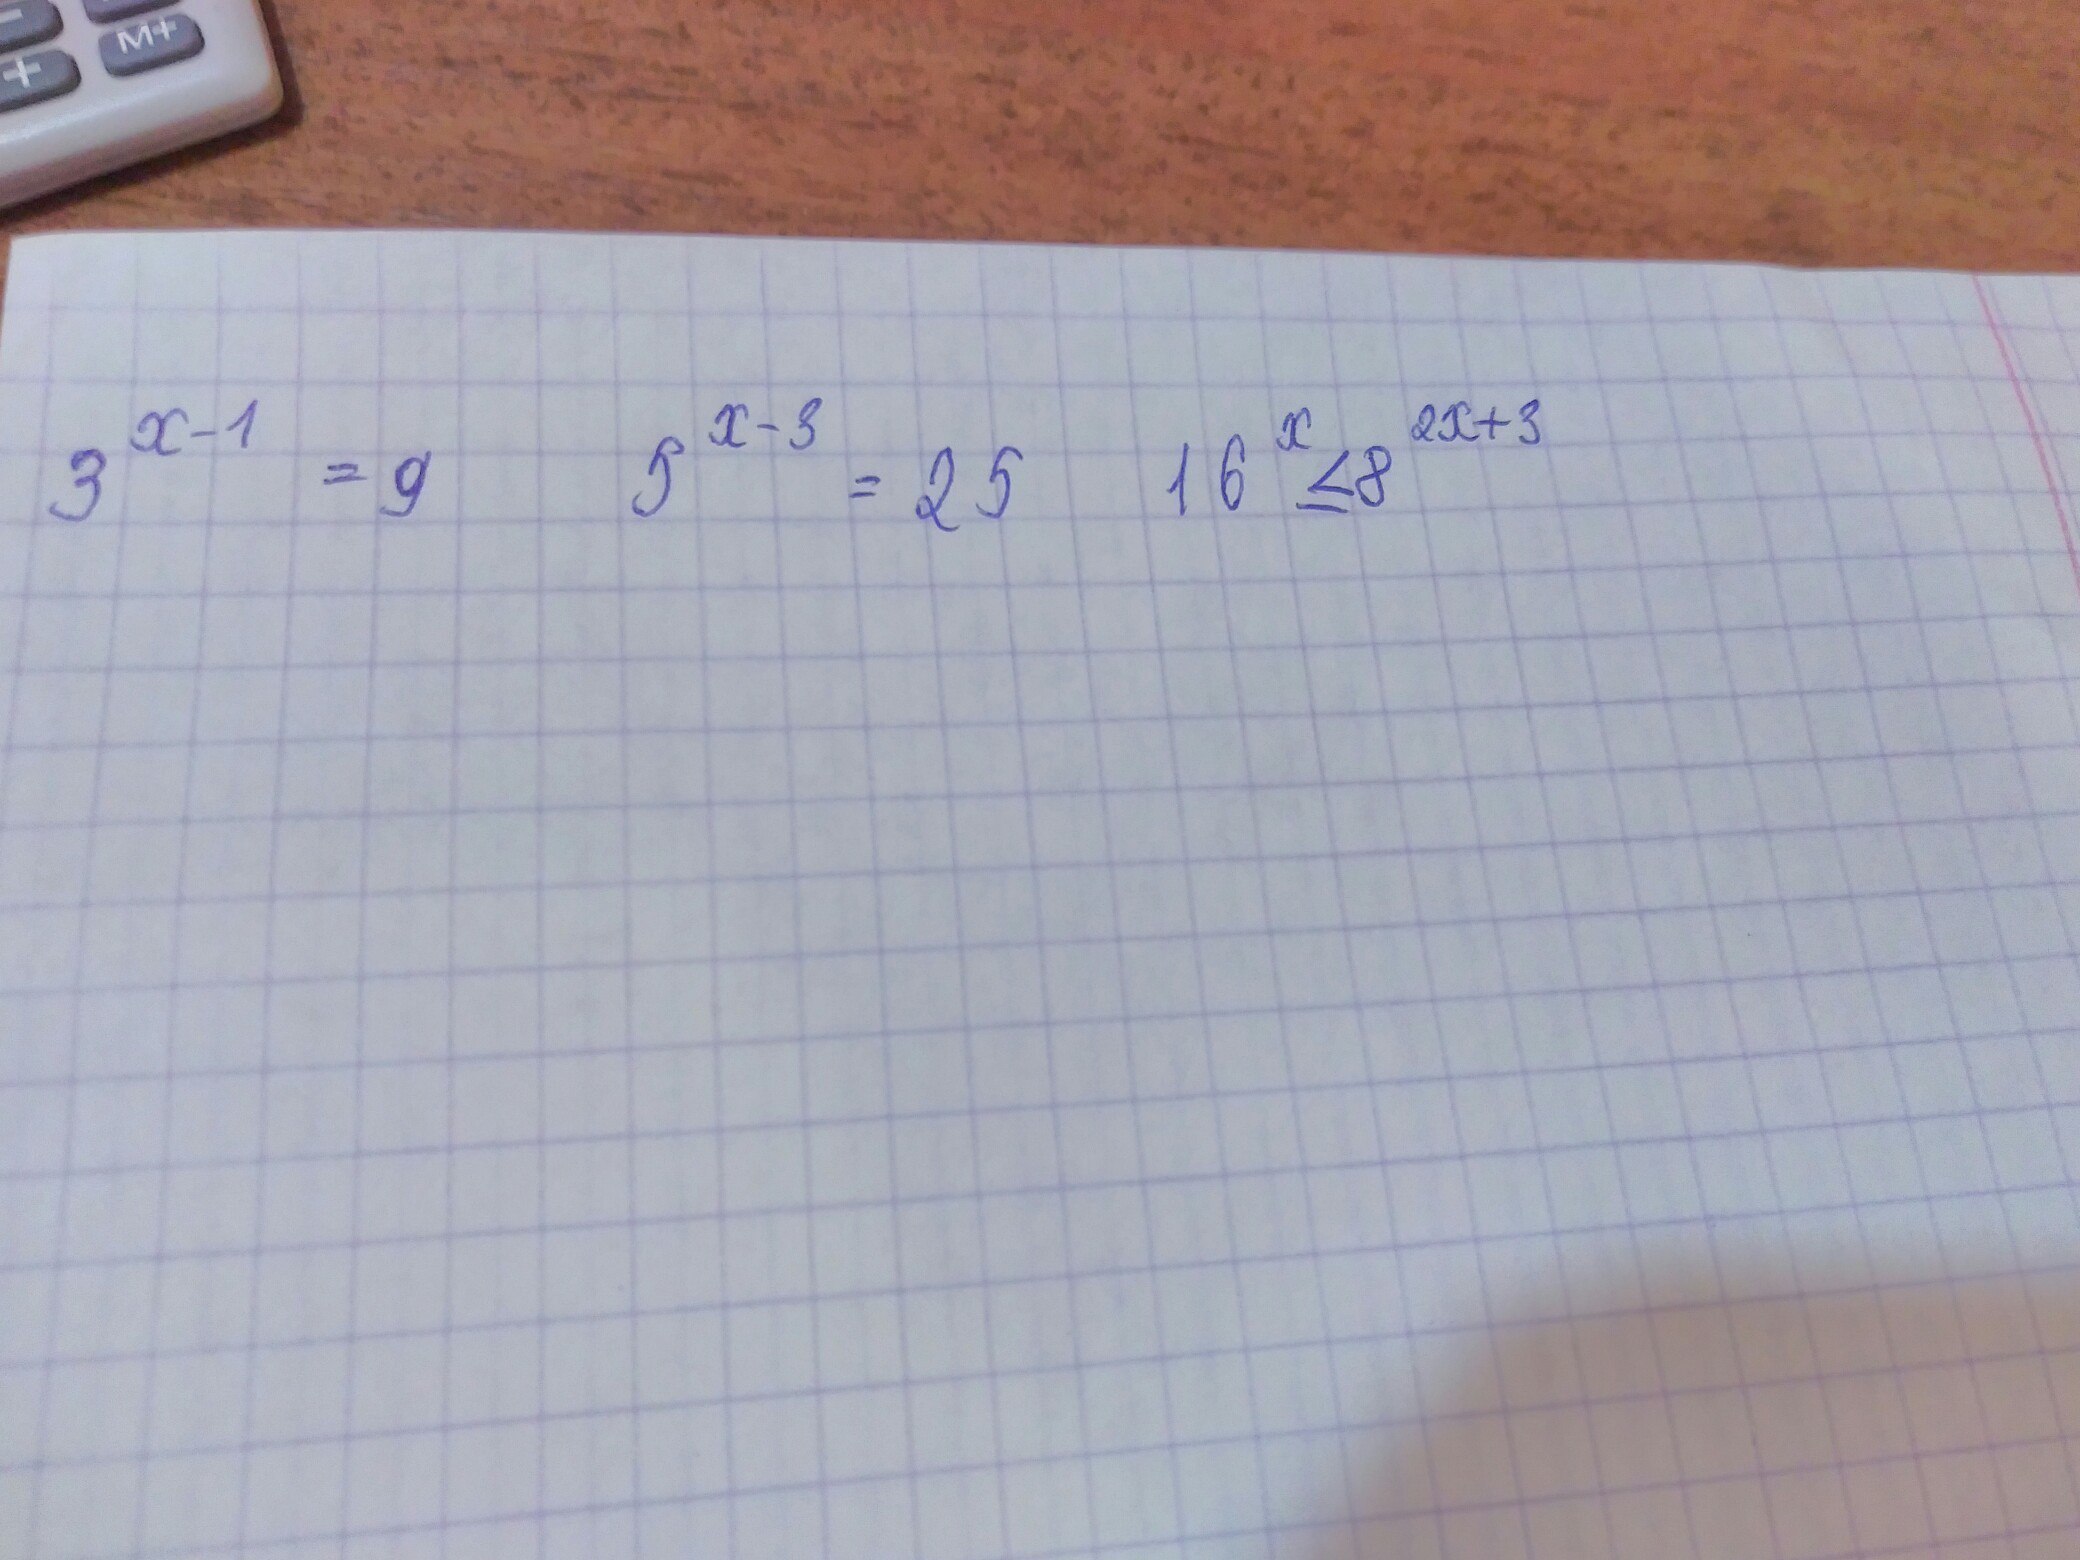 M+
+
3^{x-1} = 9 5^{x-3} = 25 16^{x} ≤ 8^{2x+3}